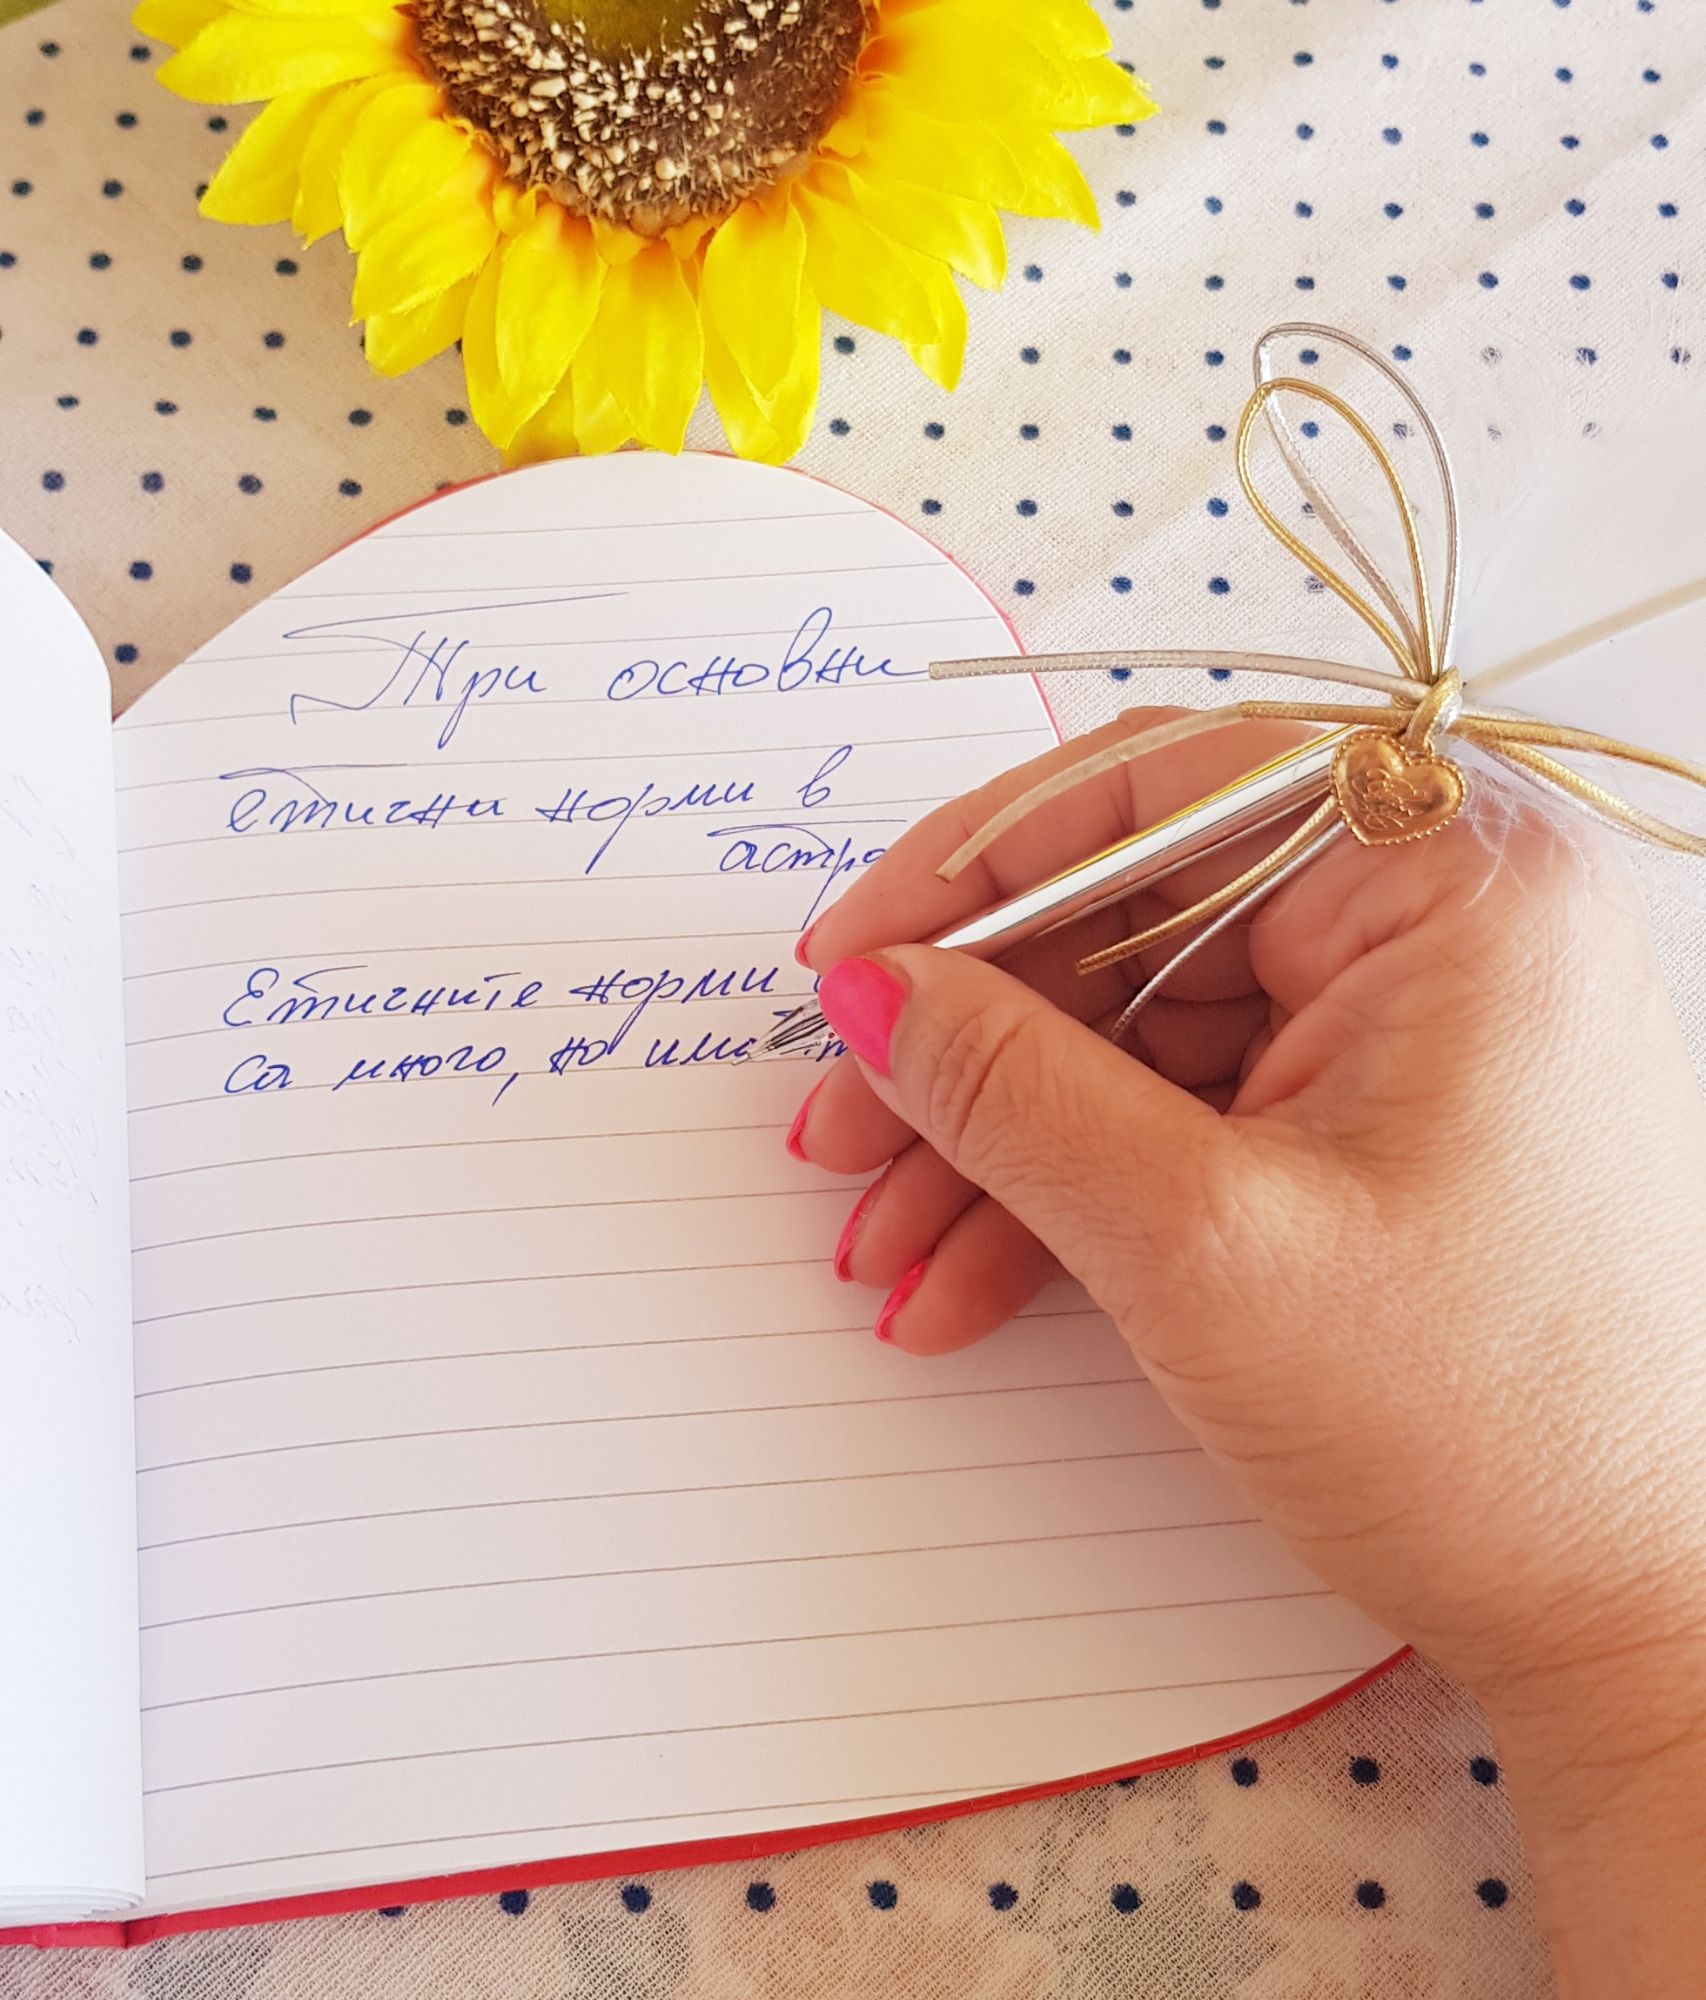 Три основни
етични норми в
астро
Етичните норми
са много, но има